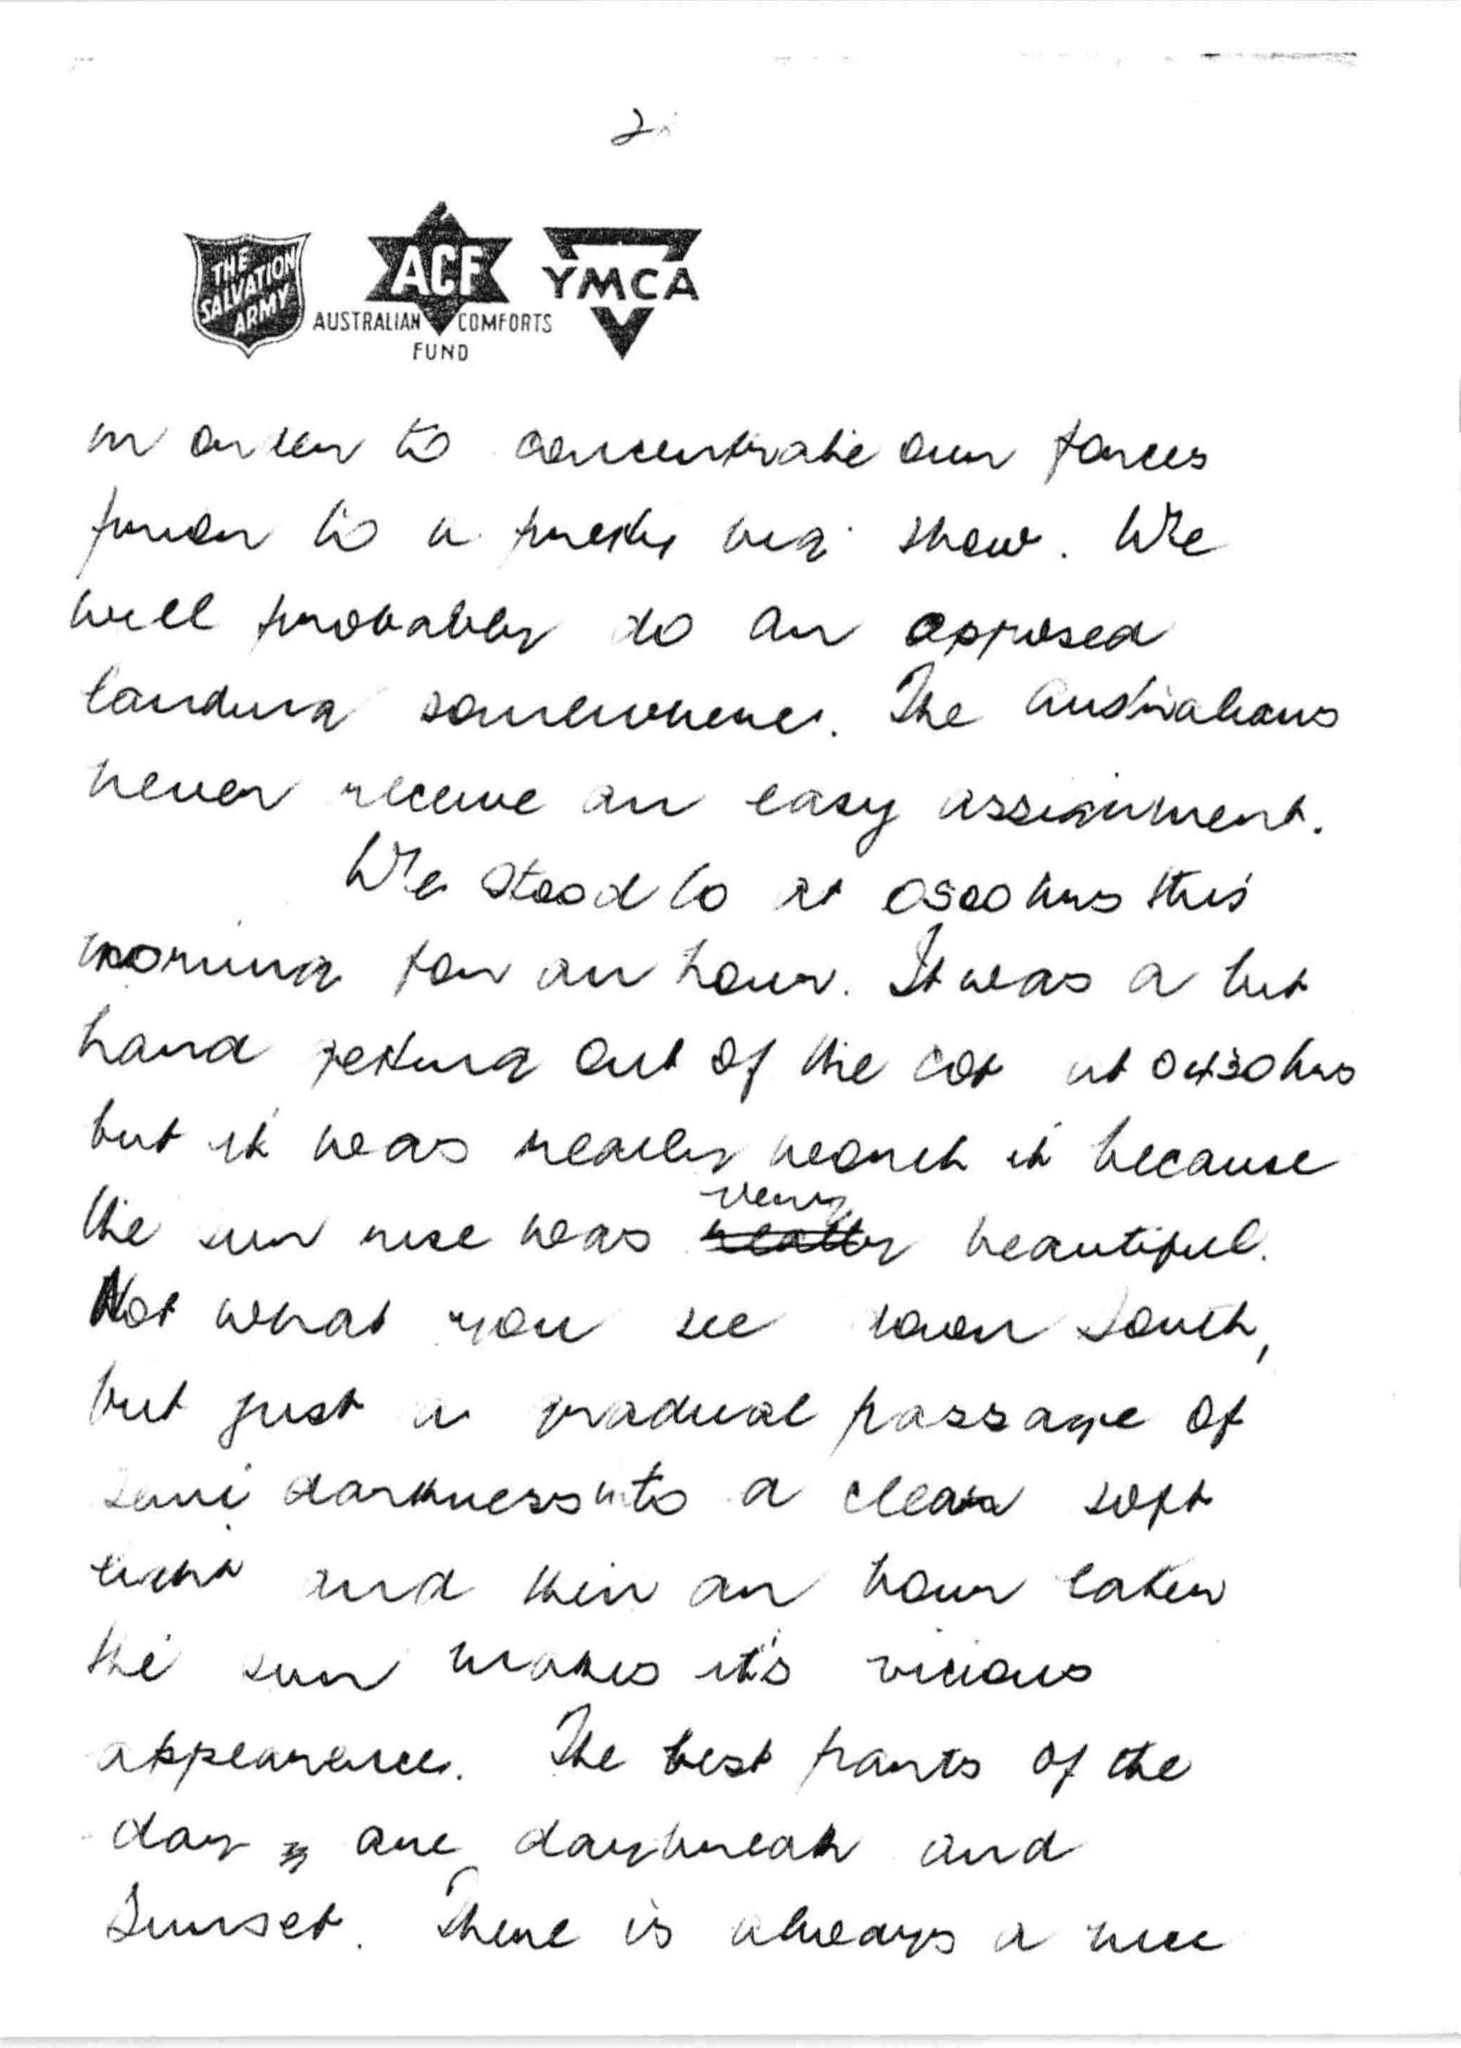 2.
THE SALVATION ARMY
ACF
AUSTRALIAN COMFORTS
FUND
YMCA
in order to concentrate our forces
prior to a pretty big show. We
will probably do an opposed
landing somewhere. The Australians
never receive an easy assignment.
We stood to at 0500 hrs this
morning for an hour. It was a bit
hard getting out of the cot at 0430 hrs
but it was really worth it because
the sun rise was really very beautiful.
Not what you see down South,
but just a gradual passage of
semi darkness into a clear soft
light and then an hour later
the sun makes it's vicious
appearence. The best parts of the
day are daybreak and
Sunset. There is always a nice